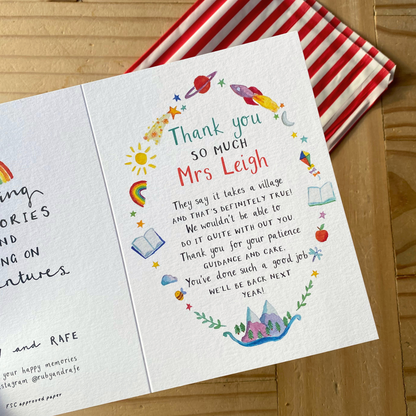 ORIES
ND
NG ON
ventures.
and RAFE
your happy memories
nstagram @rubyandrafe
FSC approved paper
Thank you
SO MUCH
Mrs Leigh
They say it takes a village
AND THAT'S DEFINITELY TRUE!
We wouldn't be able to
DO IT QUITE WITH OUT YOU
Thank you for your patience
GUIDANCE AND CARE.
You've done such a good job
WE'LL BE BACK NEXT
YEAR!